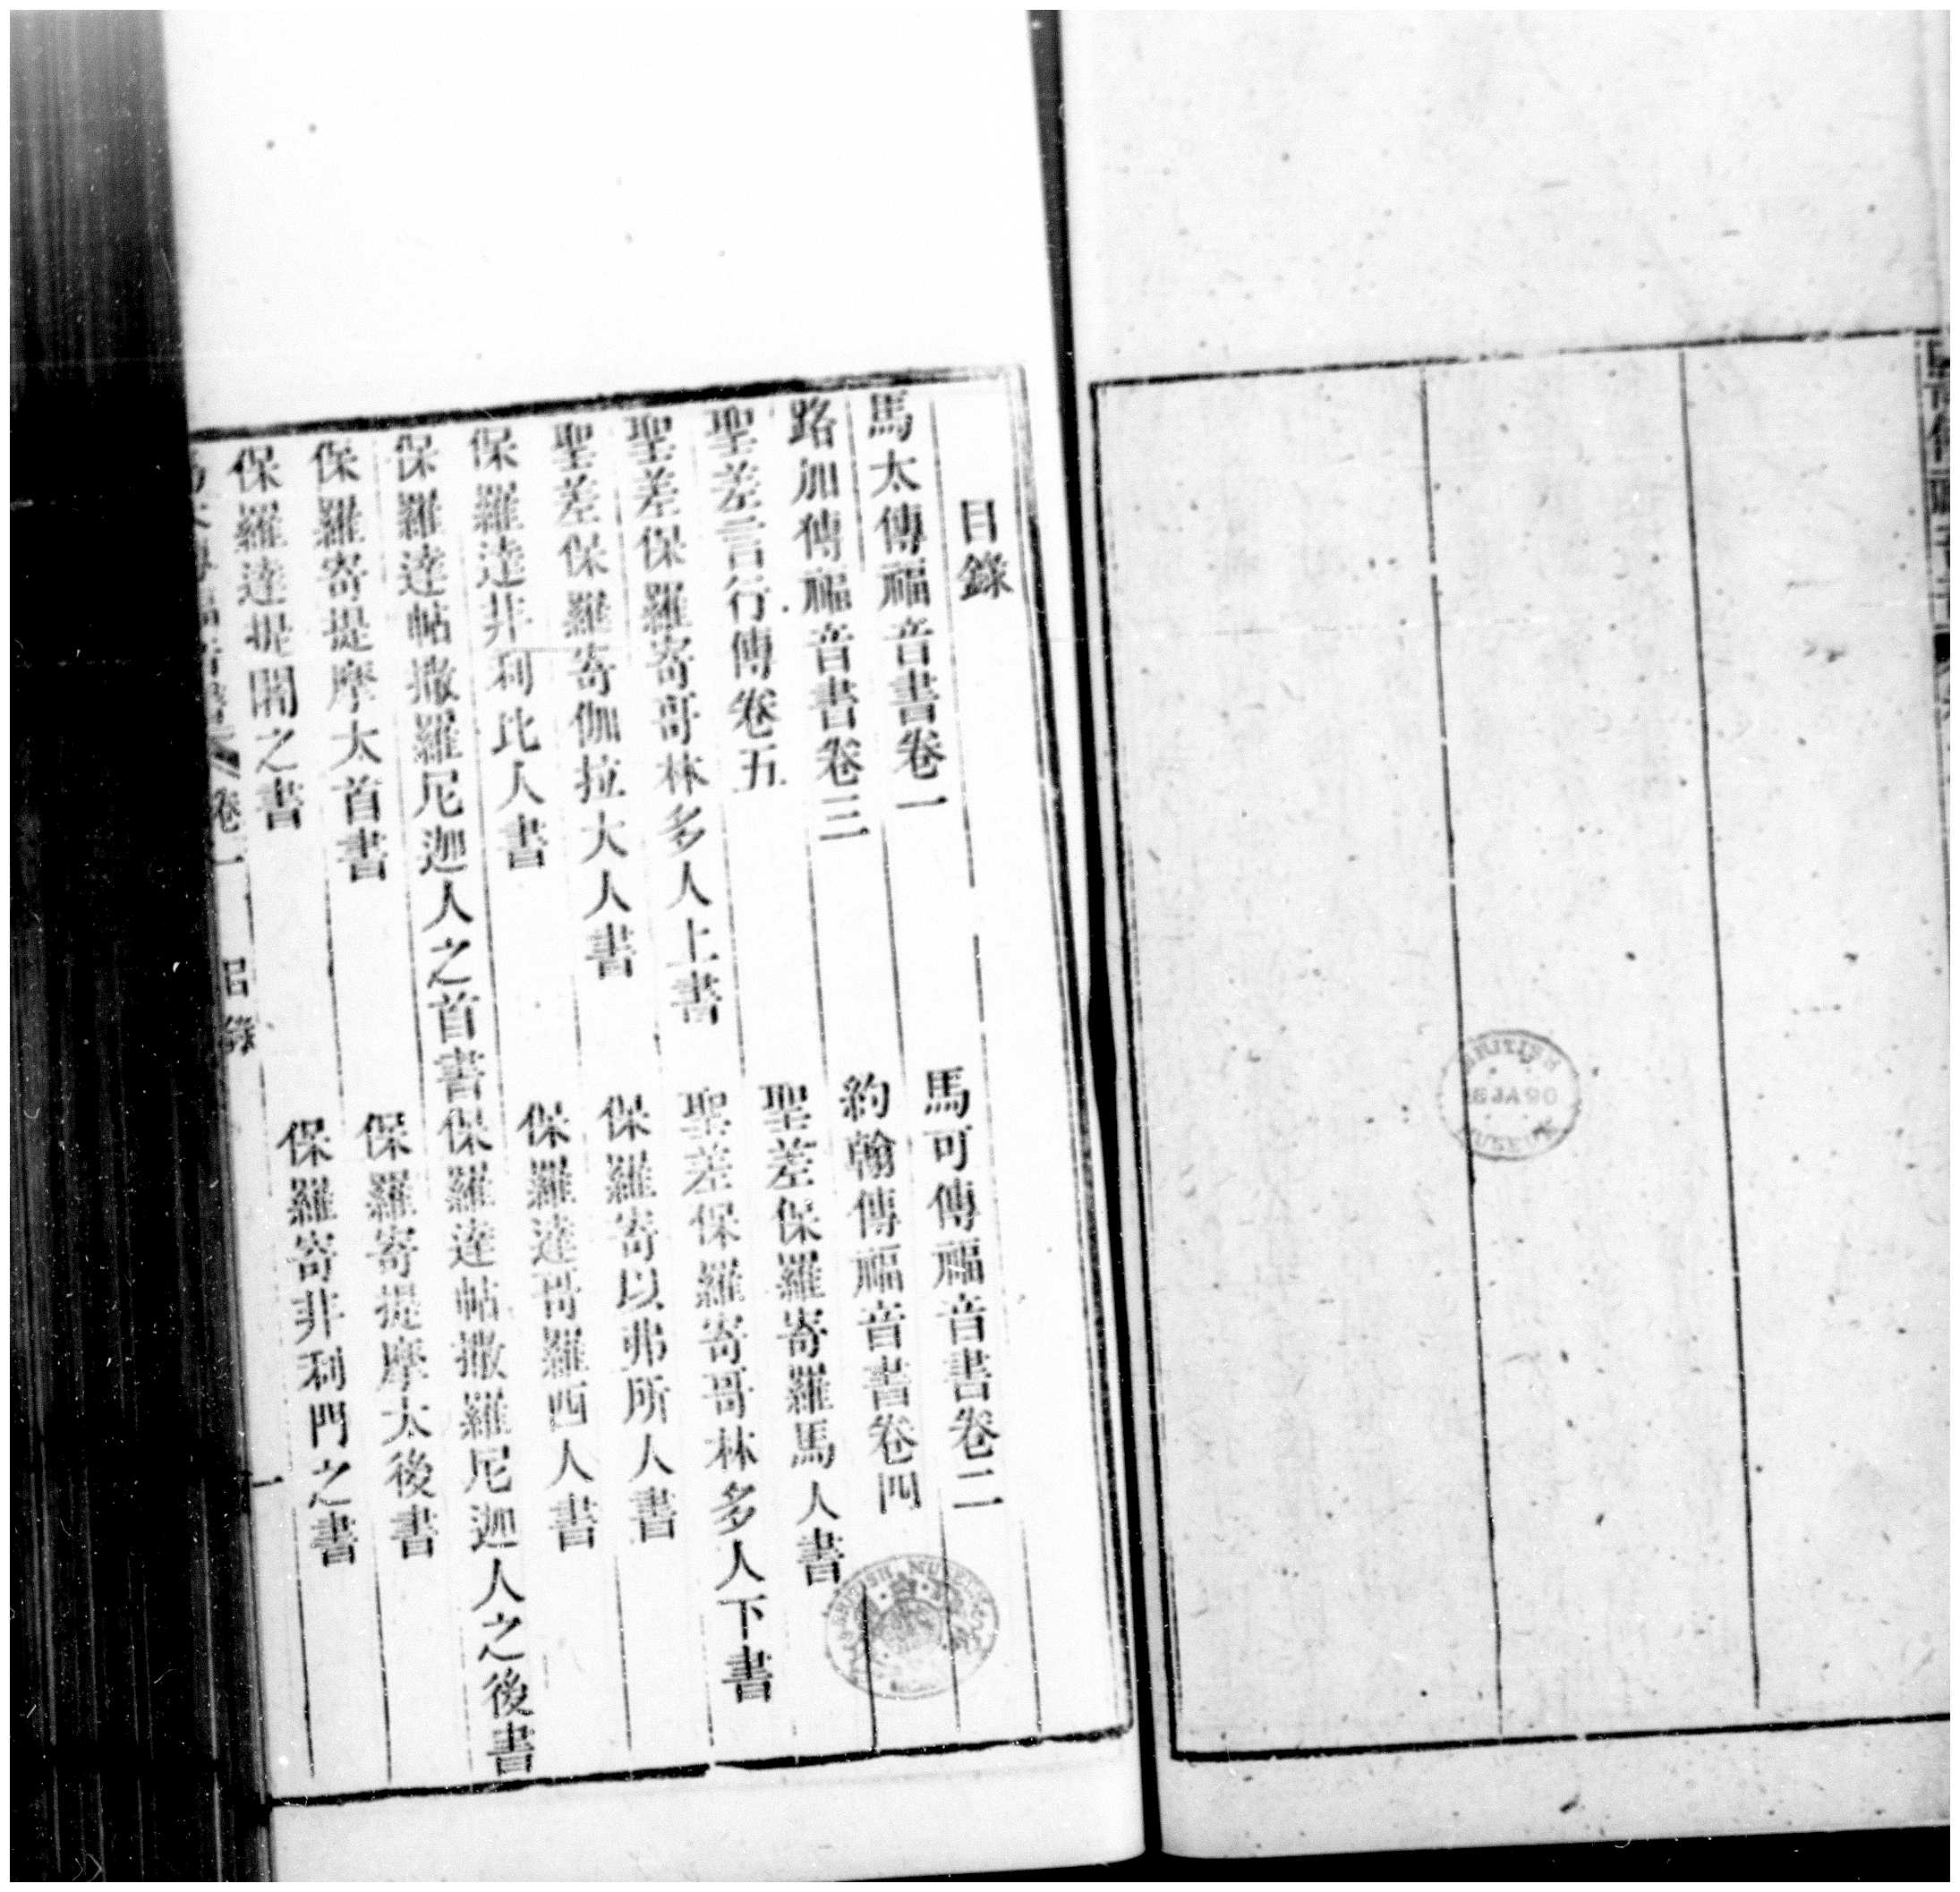 目錄
馬太傳福音書卷一
馬可傳福音書卷二
路加傳福音書卷三
約翰傳福音書卷四
聖差言行傳卷五
聖差保羅寄羅馬人書
聖差保羅寄哥林多人上書
聖差保羅寄哥林多人下書
聖差保羅寄伽拉大人書
保羅寄以弗所人書
保羅達非利比人書
保羅達哥羅西人書
保羅達帖撒羅尼迦人之首書
保羅達帖撒羅尼迦人之後書
保羅寄提摩太首書
保羅寄提摩太後書
保羅達提鬧之書
保羅寄非利門之書
卷一
目錄
一
BRITISH MUSEUM
BRITISH
MUSEUM